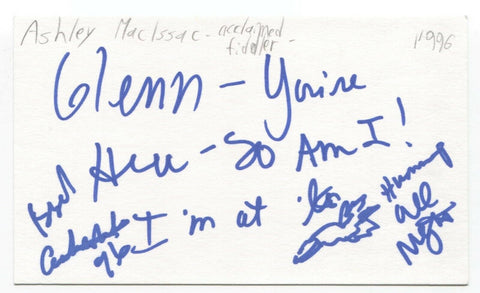 Ashley MacIssac - acclaimed
fiddler -
1996
Glenn - You're
Here - So Am I!
I'm at
96
Humming
all
Night